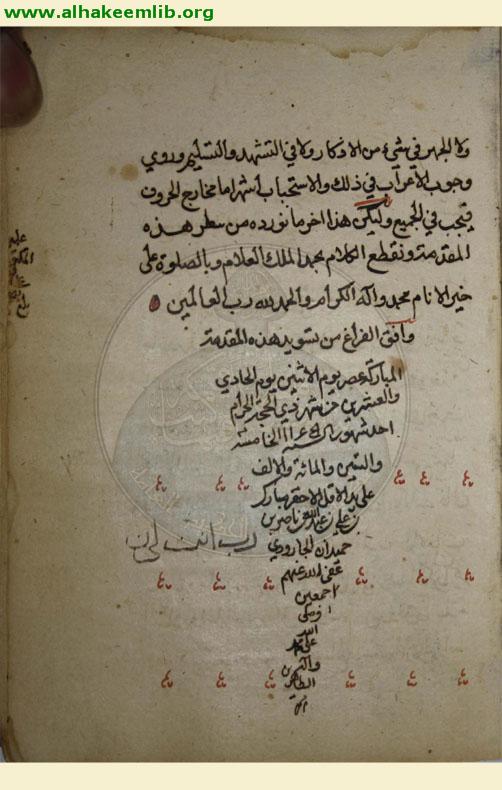 www.alhakeemlib.org
ولا الجهر في شيء من الاذكار ولا في التشهد والتسليم وروي
وجوب الأعراب في ذلك والاستحباب أشهر اما مخارج الحروف
فتجب في الجميع وليكن هذا اخر ما نورده من سطر هذه
المقدمة ونقطع الكلام بحمد الملك العلام وبالصلوة على
خير الانام محمد واله الكرام والحمد لله رب العالمين
وافق الفراغ من تسويد هذه المقدمة
المباركة عصر يوم الاثنين يوم الحادي
والعشرين من شهر ذي الحجة الحرام
احد شهور السنة الخامسة
والستين والمائة والالف
على يد الاقل الاحقر مبارك
بن علي بن عبدالله بن ناصر بن
حميدان الجارودي
عفى الله عنهم
اجمعين
وصلى
الله
على محمد
واله
الطاهرين